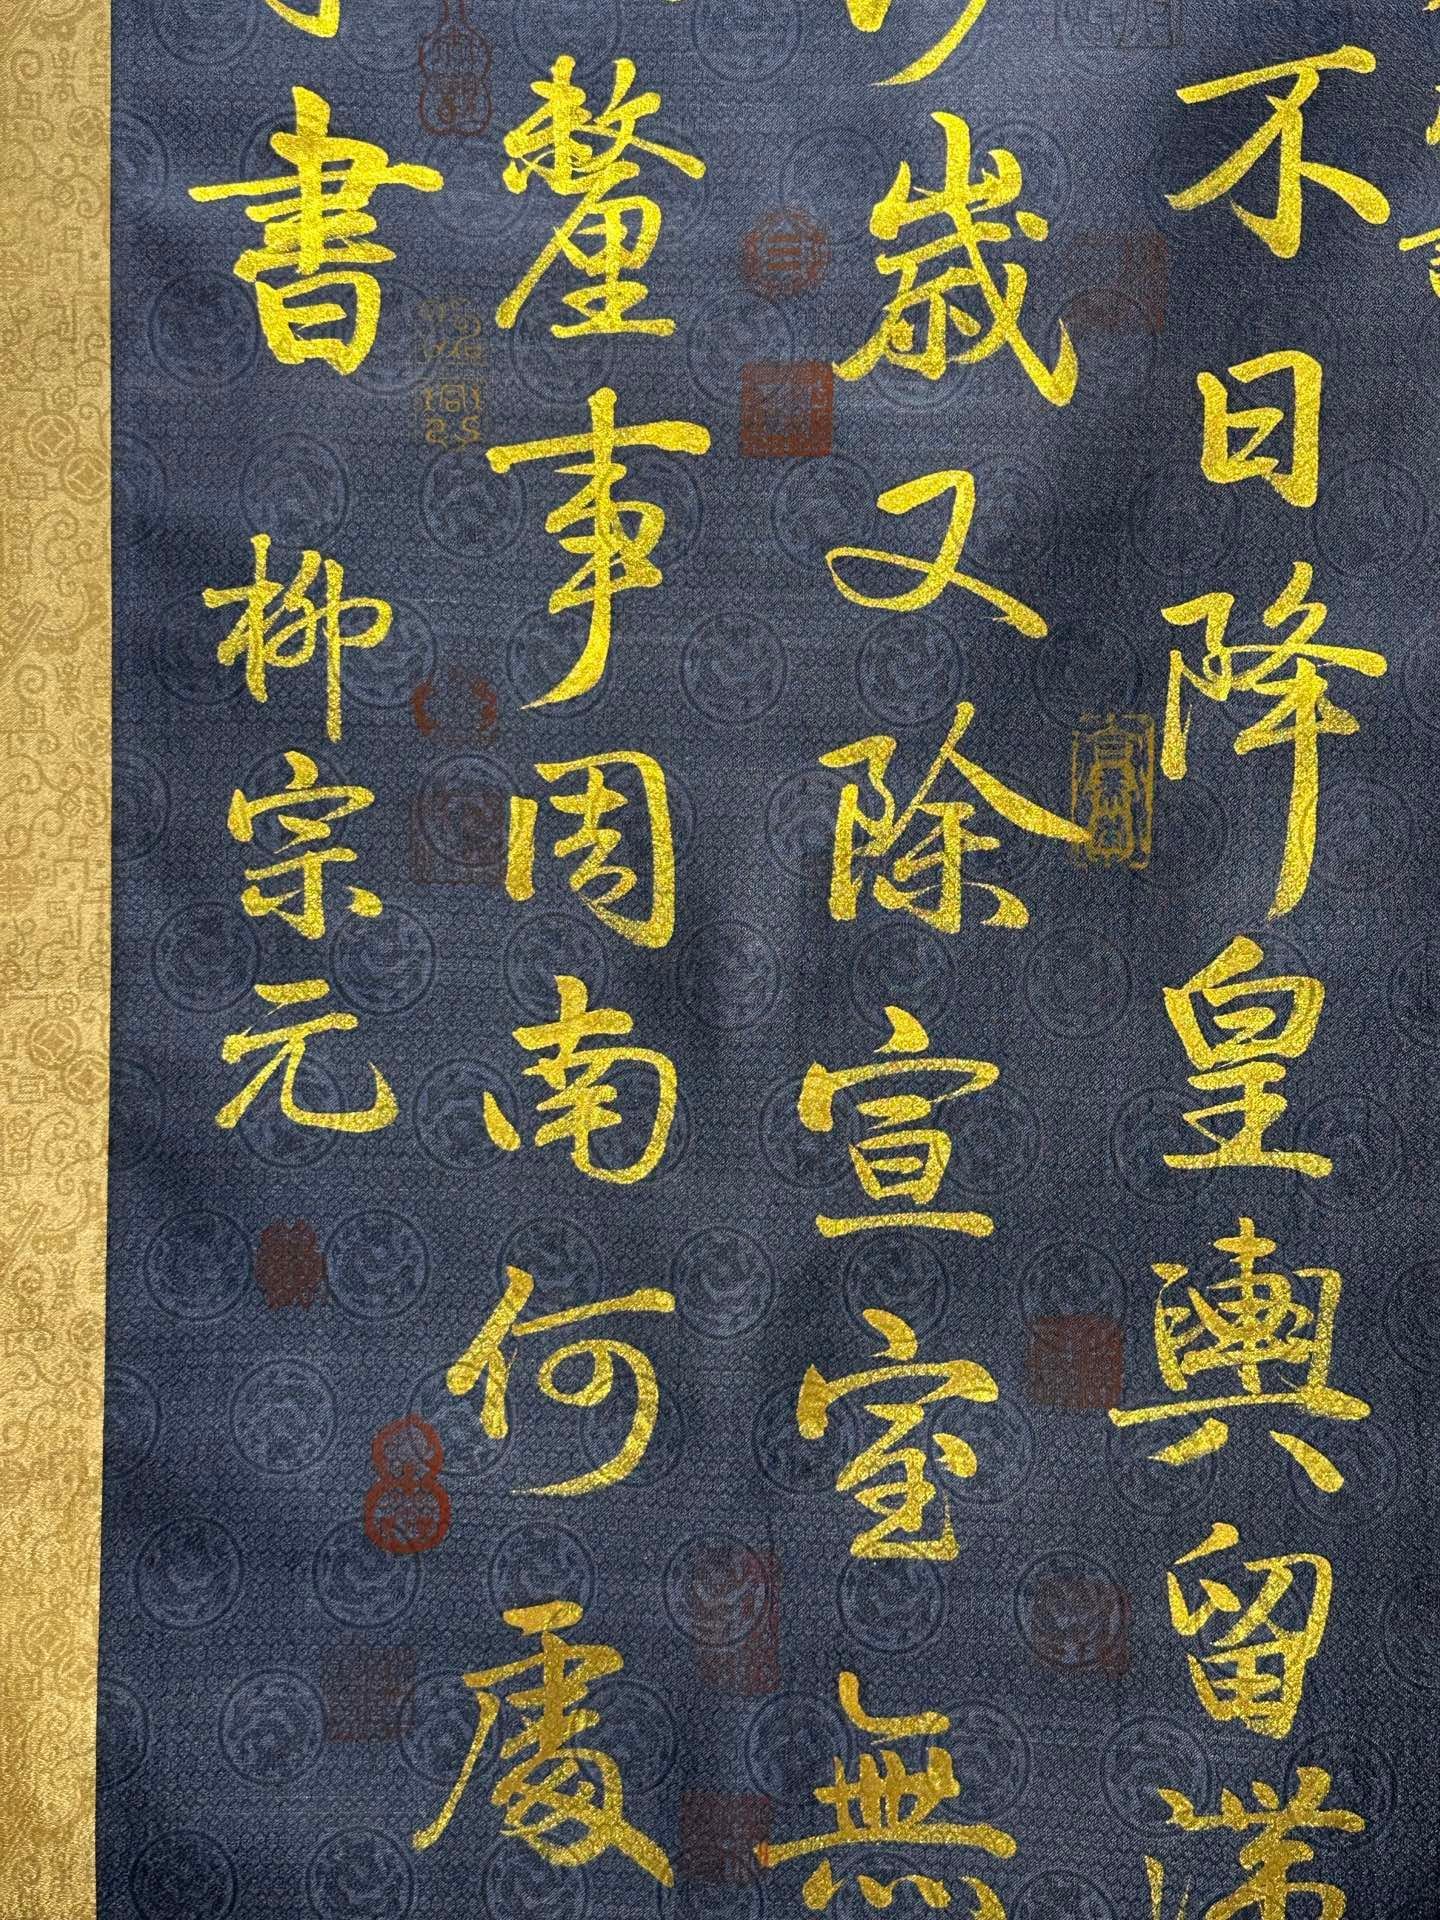 不日降皇輿留滯
歲又除宣室無
釐事周南何處
書 柳宗元